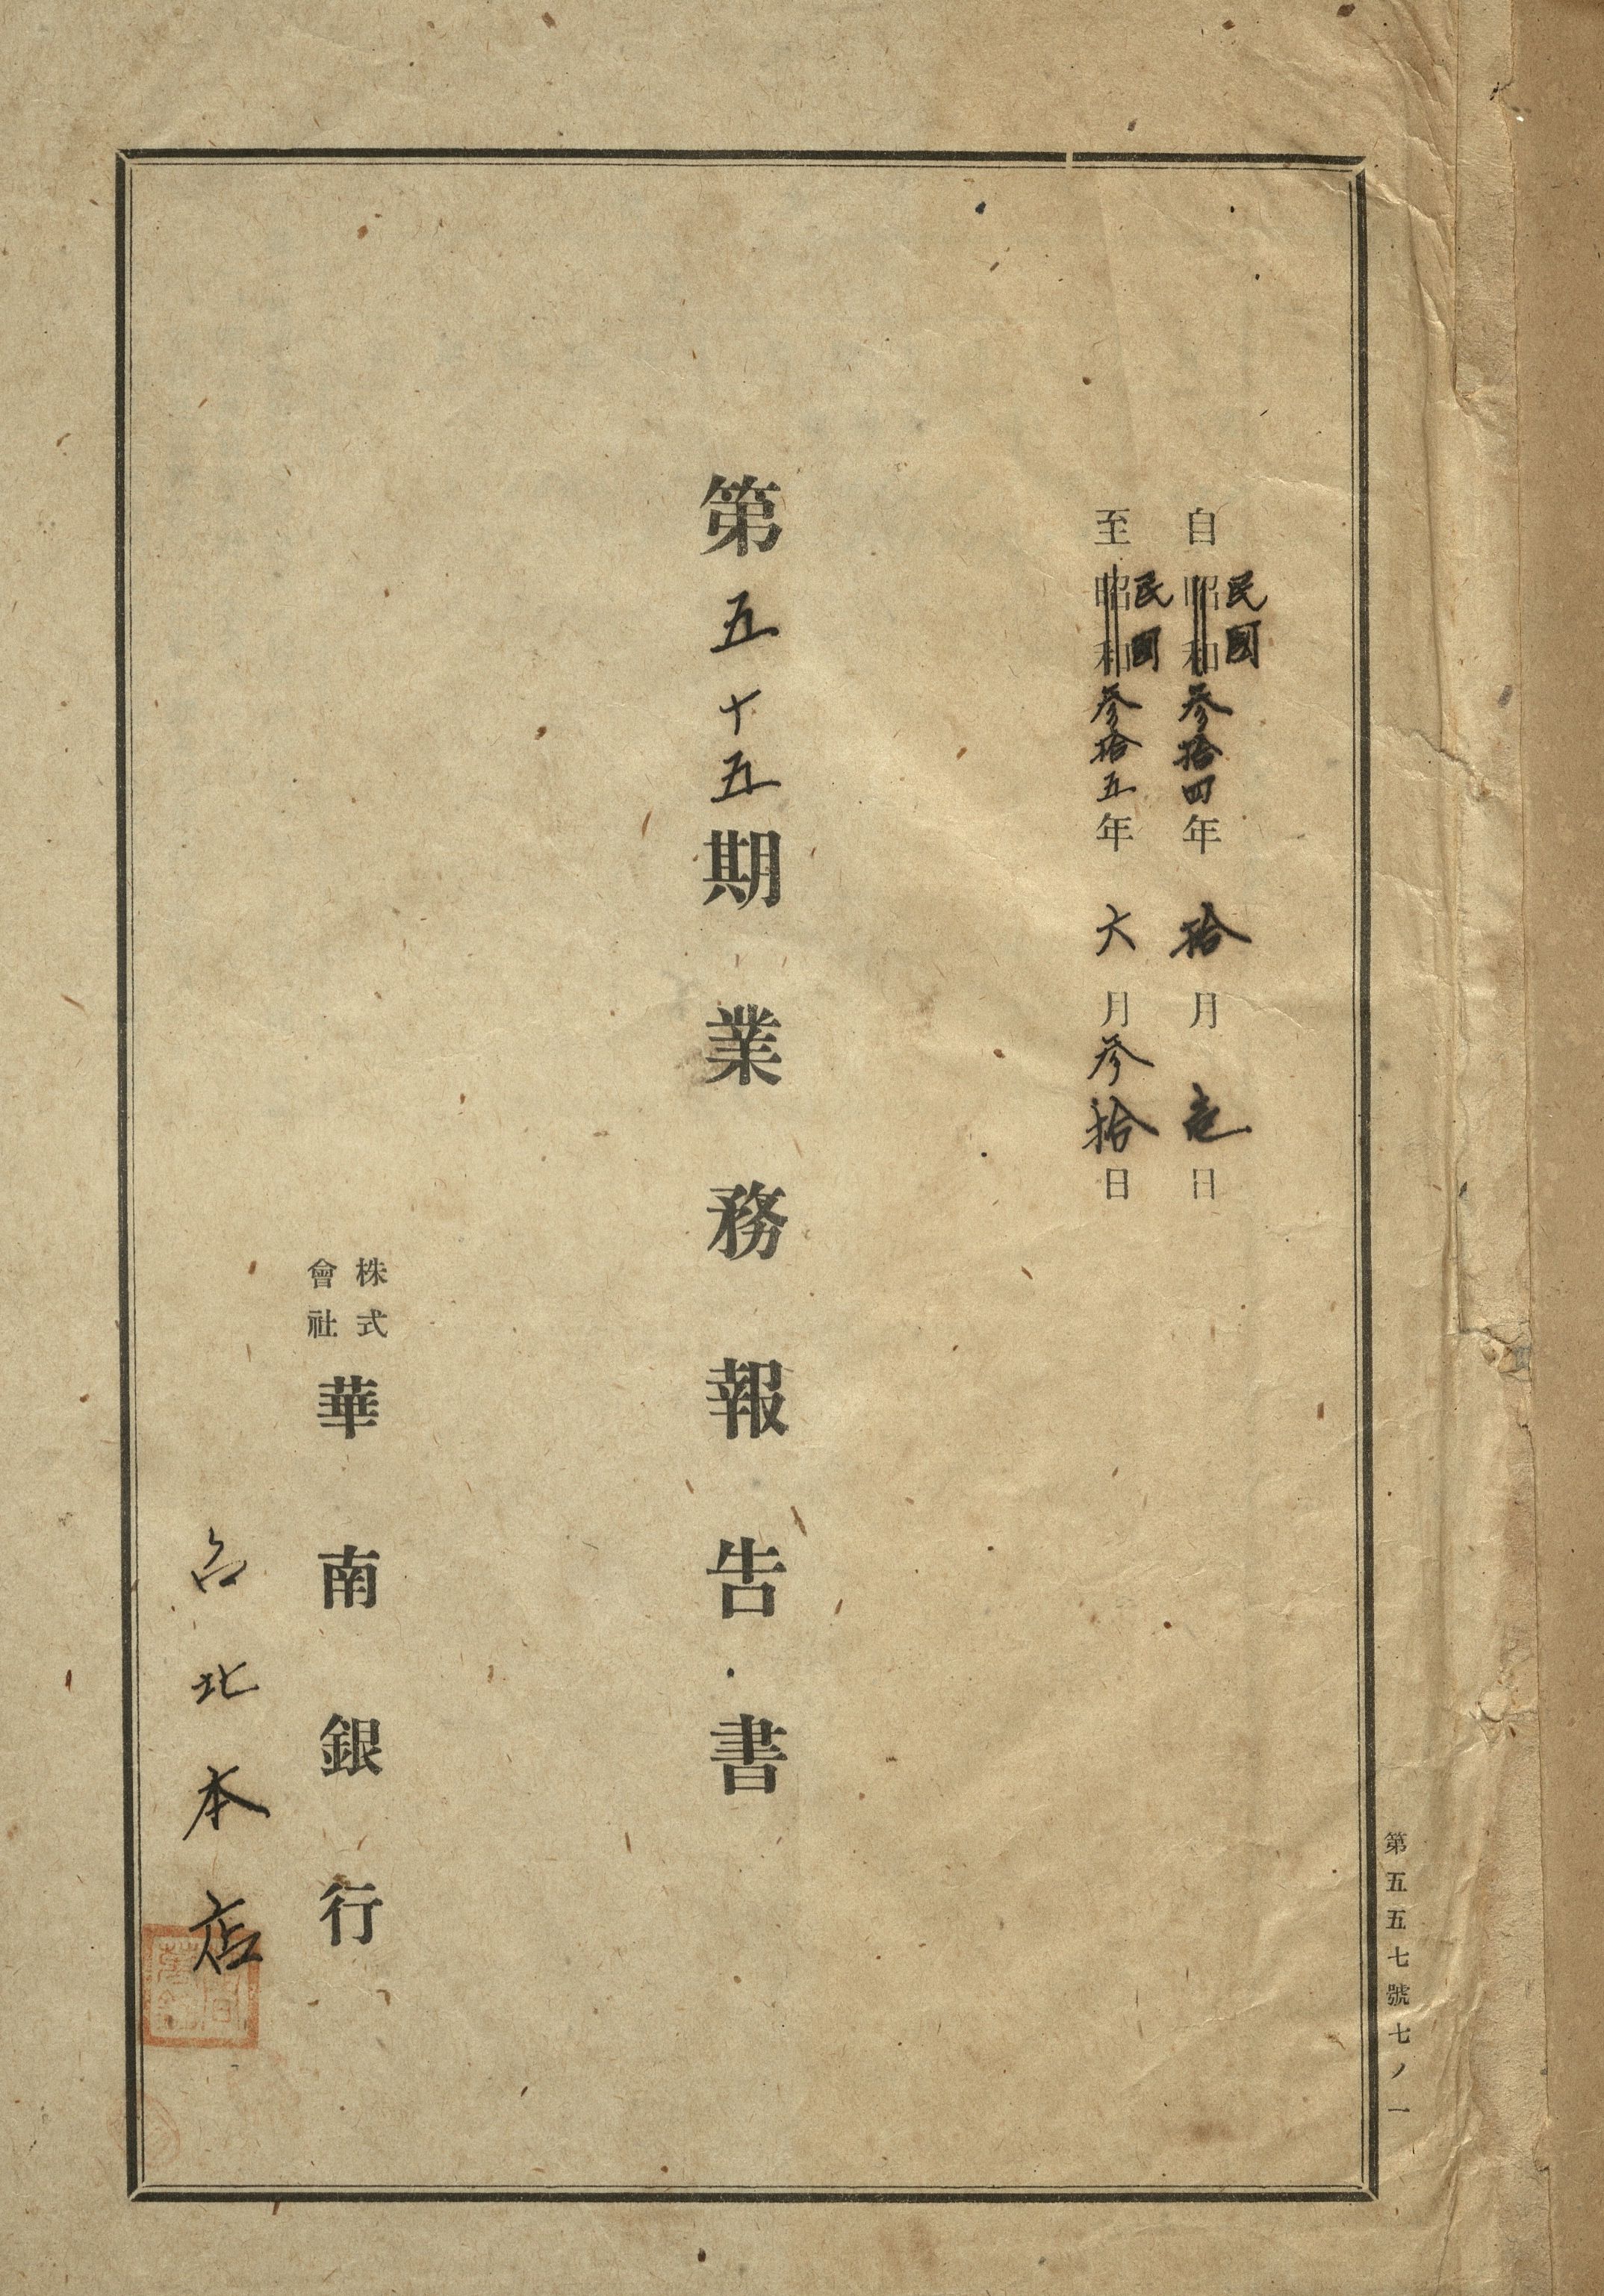 自昭和民國参拾四年拾月壱日
至昭和民國参拾五年六月参拾日
第五十五期業務報告書
株式會社華南銀行
台北本店
第五五七號七ノ一